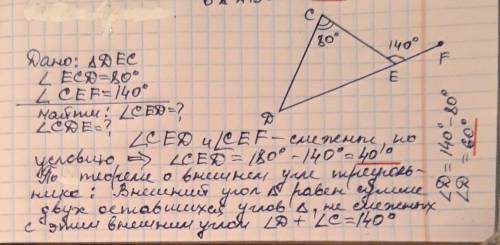 Дано: ΔDEC
∠ECD=80°
∠CEF=140°
Найти: ∠CED=?
∠CDE=?
∠CED и ∠CEF - смежн. по
условию ⇒ ∠CED = 180° - 140° = 40°
По теореме о внешнем угле треуголь-
нике: Внешний угол Δ равен сумме
двух оставшихся углов Δ, не смежных
с этим внешним углом ∠D + ∠C = 140°
∠D = 140° - 80°
∠D = 60°
C
80°
140°
F
E
D